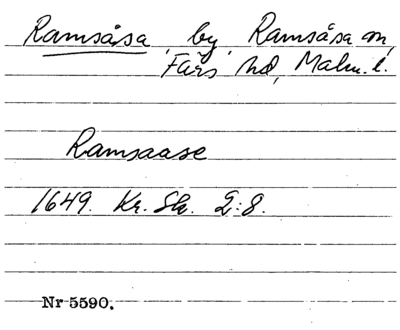 Ramsåsa, by, Ramsåsa sn,
Färs hd, Malm. l.
Ramsaase
1649. Kr. Sk. 2:8.
Nr 5590.